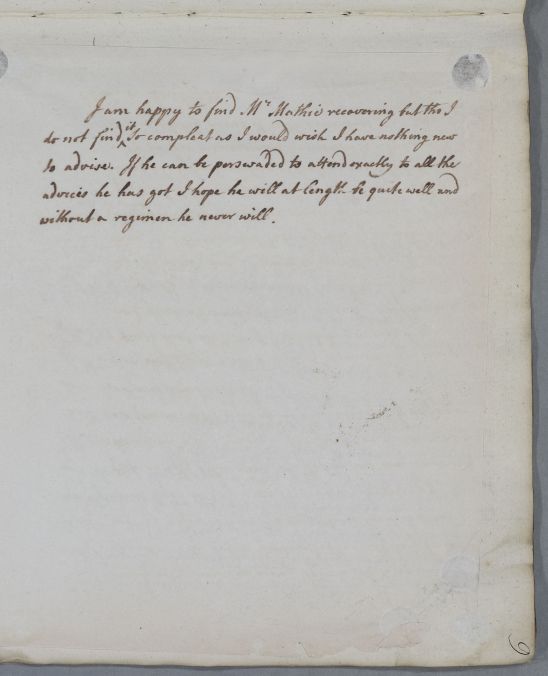 I am happy to find Mr Mathie recovering but tho I
do not find it so compleat as I would wish I have nothing new
to advise. If he can be perswaded to attend exactly to all the
advices he has got I hope he will at length be quite well and
without a regimen he never will.
6